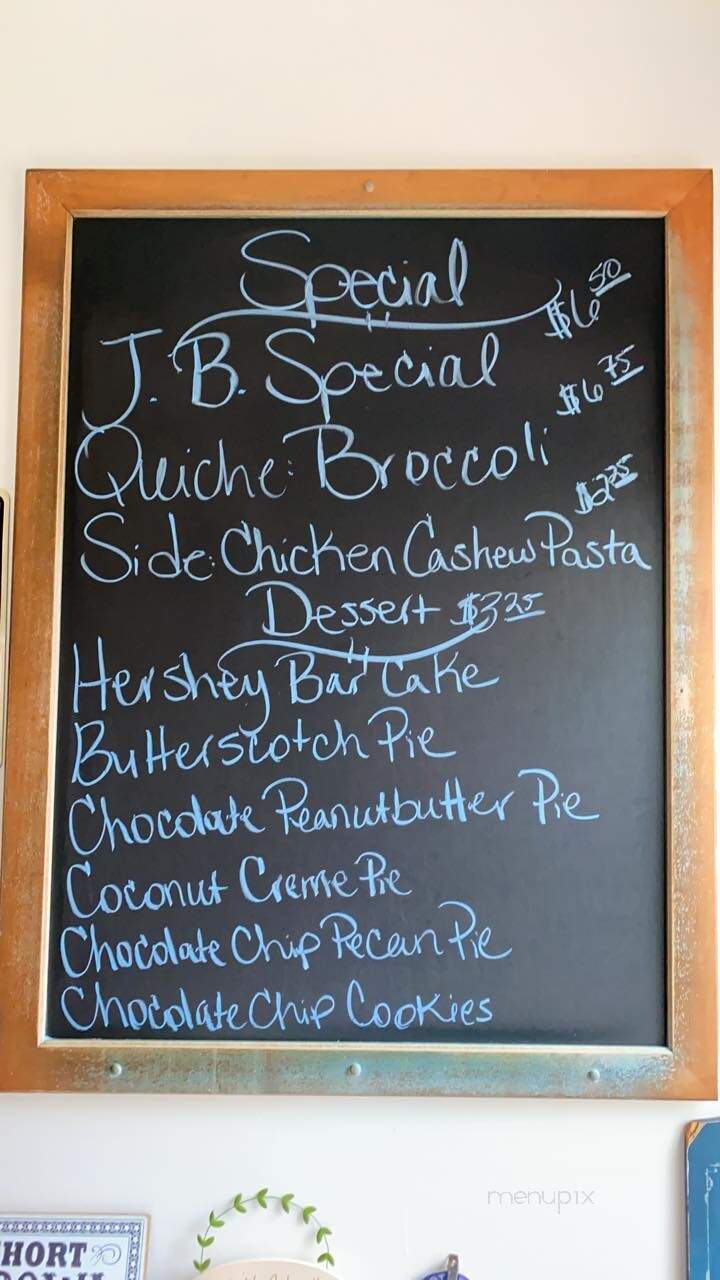 Special
J.B. Special $6.50
Quiche: Broccoli $6.75
Side: Chicken Cashew Pasta $2.25
Dessert $3.25
Hershey Bar Cake
Butterscotch Pie
Chocolate Peanutbutter Pie
Coconut Creme Pie
Chocolate Chip Pecan Pie
Chocolate Chip Cookies
menupix
HORT